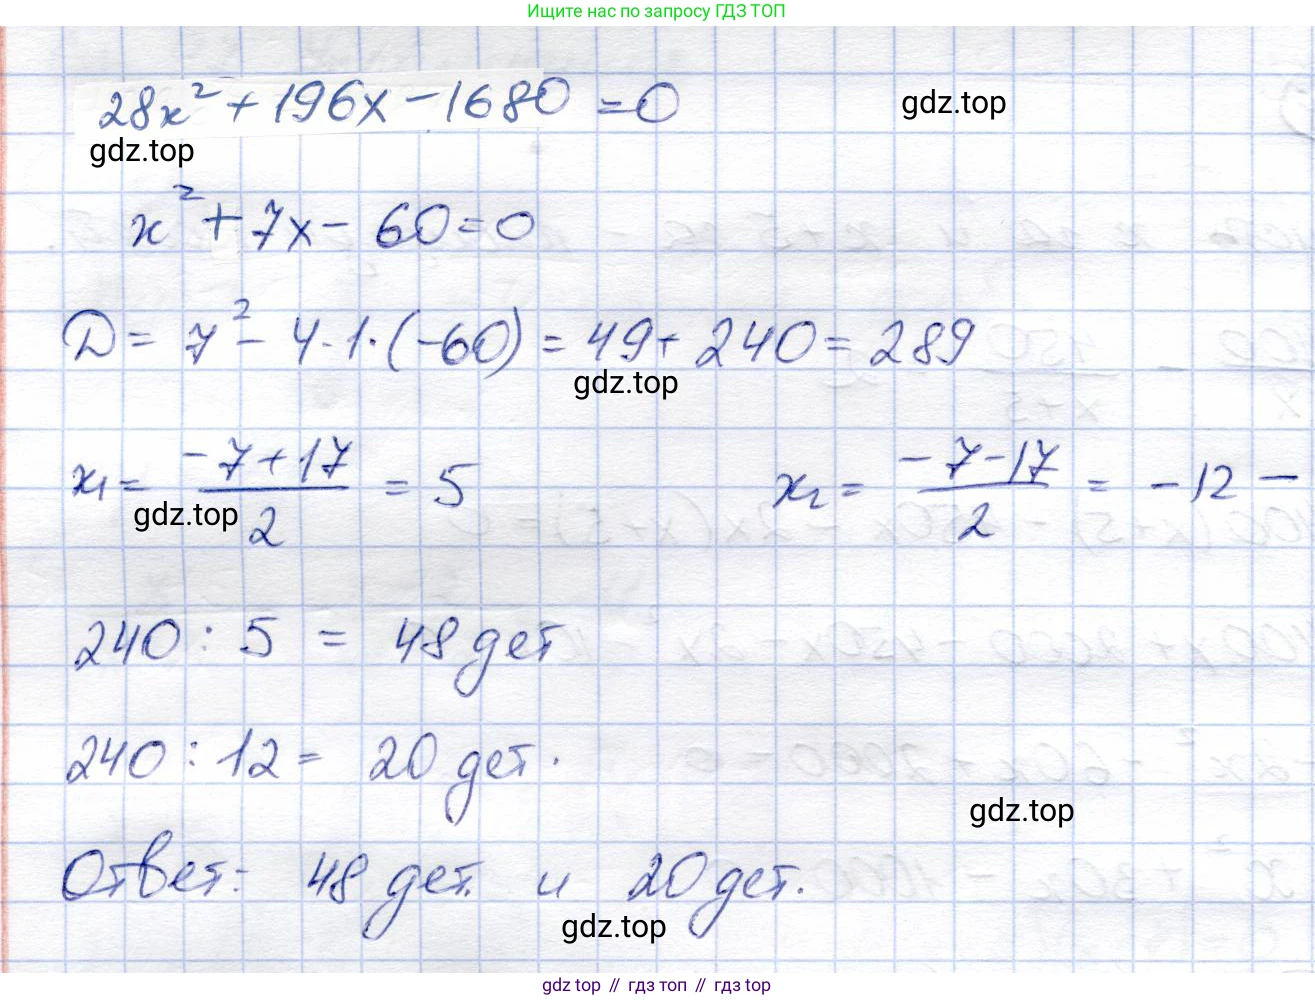 Ищите нас по запросу ГДЗ ТОП
28x² + 196x - 1680 = 0
gdz.top
gdz.top
x² + 7x - 60 = 0
D = 7² - 4·1·(-60) = 49 + 240 = 289
gdz.top
x₁ = (-7+17)/2 = 5 x₂ = (-7-17)/2 = -12 -
gdz.top
240 : 5 = 48 дет
240 : 12 = 20 дет.
gdz.top
Ответ: 48 дет. и 20 дет.
gdz.top
gdz top // гдз топ // gdz top